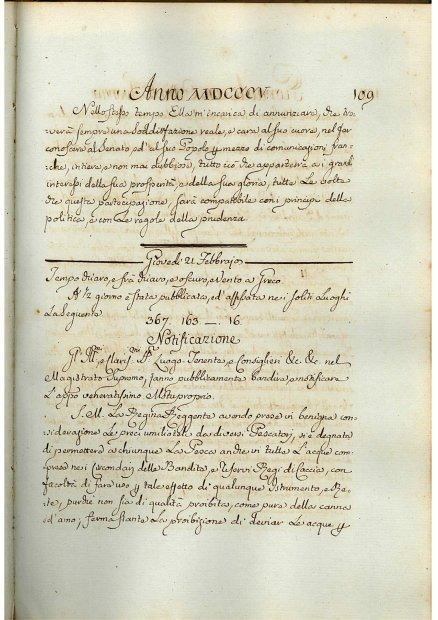 Anno MDCCCV.
109
Nello stesso tempo Ella m'incarica di annunziare, che tro-
verà sempre una soddisfazione reale, e cara al suo cuore, nel far
conoscere al Senato ed al suo Popolo p mezzo di comunicazioni fran-
che, intiere, e non mai dubbiose, tutto ciò che apparterrà a i grandi
interessi della sua prosperità, e della sua gloria, tutte le volte
che questa partecipazione, sarà compatibile con i principj della
politica, e con le regole della prudenza.
Giovedì 21 Febbrajo
Tempo chiaro, e frà chiaro, e oscuro, e vento a Greco.
A ½ giorno è stata pubblicata, ed affissata nei soliti Luoghi
La Seguente
367. 163 —. 16.
Notificazione
Gl' Ill. e Clariss. SS. Luogo Tenente, e Consiglieri &c. &c. nel
Magistrato Supremo, fanno pubblicamente bandire e notificare
L'appo veneratissimo Motuproprio.
S. M. La Regina Reggente avendo prese in benigna con-
siderazione Le preci umiliatele da diversi Pescatori, si è degnata
di permettere a chiunque La Pesca anche in tutte L'acque com-
prese nei Circondarj delle Bandite, e Riservi Regj di Caccia, con
facoltà di fare uso p tale effetto di qualunque Istrumento, e Re-
te, purchè non sia di qualità proibita, come pure della canna
ed amo; ferma stante La proibizione di deviar Le acque p